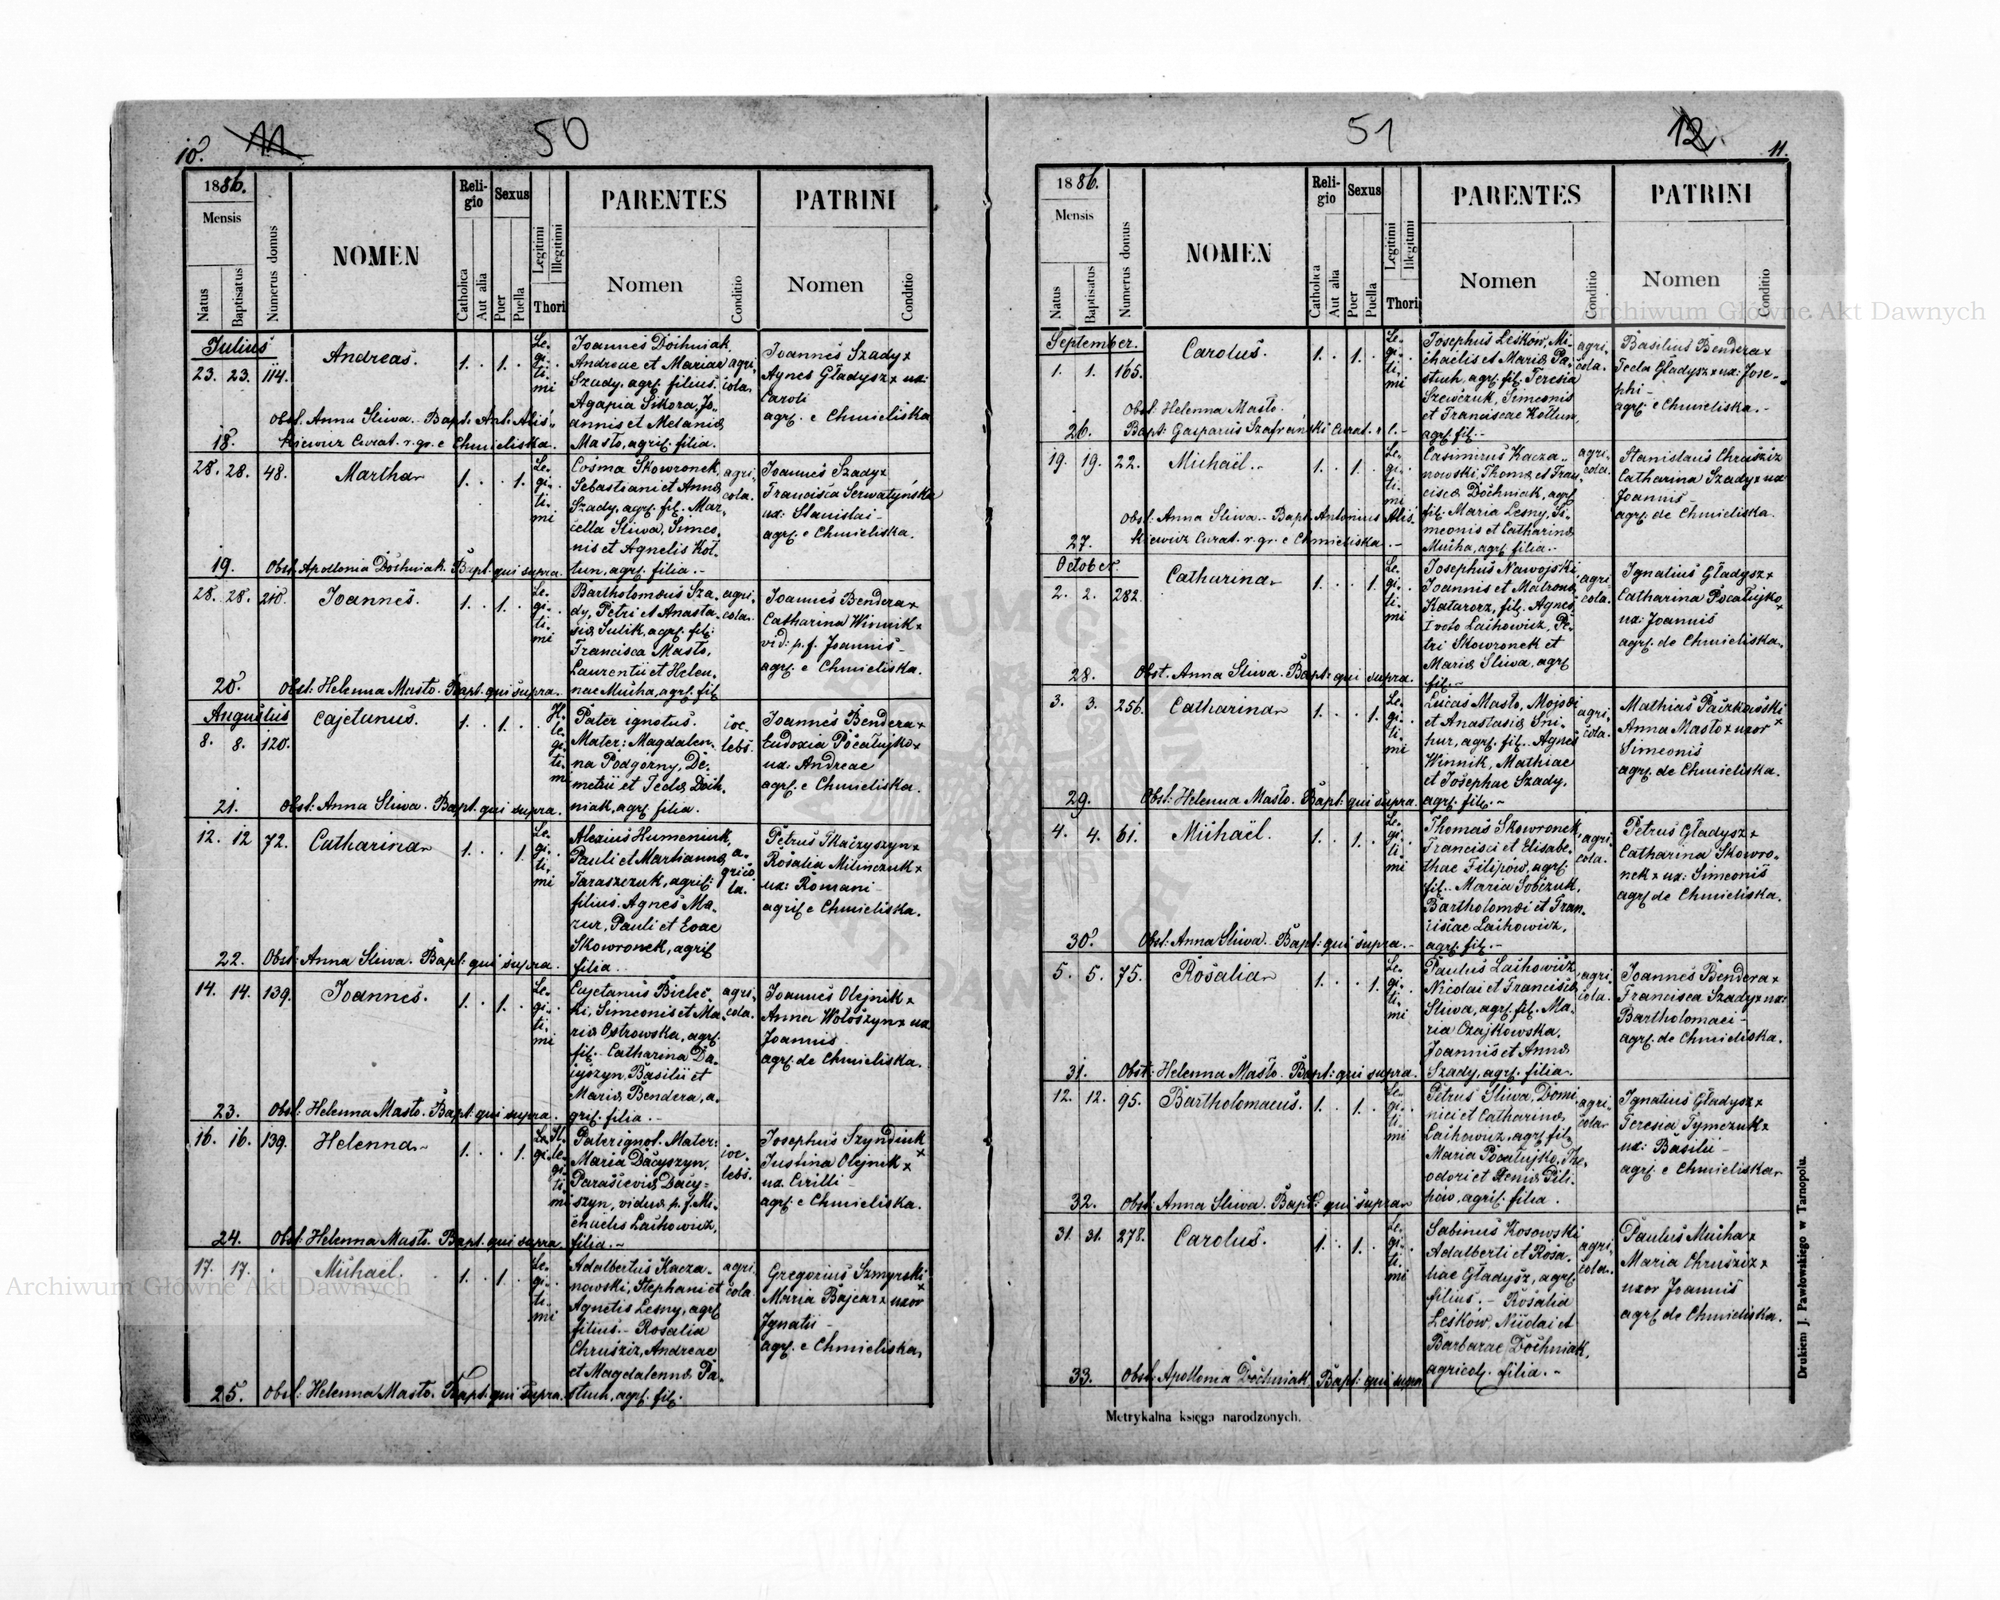 10.
11
50
1886.
Mensis
Natus
Baptisatus
Numerus domus
NOMEN
Reli-
gio
Catholica
Aut alia
Sexus
Puer
Puella
Legitimi
Illegitimi
Thori
PARENTES
Nomen
Conditio
PATRINI
Nomen
Conditio
Julius
23. 23. 114.
Andreas.
1. . 1. .
Le-
gi-
ti-
mi
Joannes Dochniak
Andreae et Mariae
Szady, agr. filius.
Agapia Sikora, Jo-
annis et Melaniae
Masło, agric. filia.
agri-
cola.
Joannes Szady +
Agnes Gładysz + ux:
Caroli
agr. e Chmieliska
Obst. Anna Sliwa. Bapt. Ant. Alis-
18. kiewicz Curat. r. gr. e Chmieliska.
28. 28. 48.
Martha
1. . . 1.
Le-
gi-
ti-
mi
Cosma Skowronek,
Sebastiani et Annae
Szady, agr. fil. Mar-
cella Sliwa, Simeo-
nis et Agnetis Koł-
tun, agr. filia. -
agri-
cola.
Joannes Szady +
Francisca Serwatyńska
ux: Stanislai -
agr. e Chmieliska.
19. Obst. Apollonia Dochniak. Bapt. qui supra.
28. 28. 210.
Joannes.
1. . 1. .
Le-
gi-
ti-
mi
Bartholomäus Sza-
dy, Petri et Anasta-
siae Sulik, agr. fil:
Francisca Masło,
Laurentii et Helen-
nae Mucha, agr. fil.
agri-
cola.
Joannes Bendera +
Catharina Winnik +
vid: p. f. Joannis -
agr. e Chmieliska.
20. Obst: Helenna Masło. Bapt. qui supra.
Augustus
8. 8. 120.
Cajetanus.
1. . 1. .
Il-
le-
gi-
ti-
mi
Pater ignotus.
Mater: Magdalen-
na Podgórny, De-
metrii et Teclae Doch-
niak, agr. filia.
coe-
lebs.
Joannes Bendera +
Eudoxia Pocałujko +
ux: Andreae
agr. e Chmieliska.
21. Obst: Anna Sliwa. Bapt. qui supra.
12. 12 72.
Catharina
1. . . 1.
Le-
gi-
ti-
mi
Alexius Humeniuk,
Pauli et Martiannae
Taraszczuk, agric:
filius. Agnes Ma-
zur, Pauli et Evae
Skowronek, agric
filia.
a-
grico-
la.
Petrus Tkaczyszyn +
Rosalia Milinczuk +
ux: Romani -
agric e Chmieliska.
22. Obst: Anna Sliwa. Bapt: qui supra.
14. 14. 139.
Joannes.
1. . 1. .
Le-
gi-
ti-
mi
Cajetanus Bielec-
ki, Simeonis et Ma-
riae Ostrowska, agr.
fil. Catharina Da-
cyszyn, Basilii et
Mariae Bendera, a-
gric. filia. -
agri-
cola.
Joannes Olejnik +
Anna Wołoszyn + ux.
Joannis
agr. de Chmieliska.
23. Obst: Helenna Masło. Bapt: qui supra.
16. 16. 139.
Helenna
1. . . 1.
Il-
le-
gi-
ti-
mi
Pater ignot. Mater:
Maria Dacyszyn,
Parasceviae Dacy-
szyn, viduae p. f. Mi-
chaelis Lachowicz,
filia. -
coe-
lebs.
Josephus Szyndiuk +
Justina Olejnik +
ux. Cirilli -
agr. e Chmieliska.
24. Obst: Helenna Masło. Bapt. qui supra.
17. 17.
Michaël.
1. . 1. .
Le-
gi-
ti-
mi
Adalbertus Kacza-
nowski, Stephani et
Agnetis Lesny, agr.
filius. - Rosalia
Chruściz, Andreae
et Magdalennae Pa-
stuch, agr. fil.
agri-
cola.
Gregorius Szmyrski +
Maria Bajcar + uxor
Ignatii -
agr. e Chmieliska.
25. Obst: Helenna Masło. Bapt: qui supra.
51
12.
11.
1886.
Mensis
Natus
Baptisatus
Numerus domus
NOMEN
Reli-
gio
Catholica
Aut alia
Sexus
Puer
Puella
Legitimi
Illegitimi
Thori
PARENTES
Nomen
Conditio
PATRINI
Nomen
Conditio
September.
1. 1. 165.
Carolus.
1. . 1. .
Le-
gi-
ti-
mi
Josephus Leśków, Mi-
chaëlis et Mariae Pa-
stuch, agr. fil. Teresia
Szewczuk, Simeonis
et Franciscae Kołtun,
agr. fil. -
agri-
cola.
Basilius Bendera +
Tecla Gładysz + ux: Jose-
phi -
agr. e Chmieliska. -
Obst: Helenna Masło.
26. Bapt: Gasparus Szafrański Curat. r. l. -
19. 19. 22.
Michaël. -
1. . 1. .
Le-
gi-
ti-
mi
Casimirus Kacza-
nowski, Thomae et Fran-
ciscae Dochniak, agr.
fil. Maria Lesny, Si-
meonis et Catharinae
Mucha, agr. filia. -
agri-
cola.
Stanislaus Chruściz
Catharina Szady + ux
Joannis -
agr. de Chmieliska.
Obst: Anna Sliwa. - Bapt. Antonius Alis-
27. kiewicz Curat. r. gr. e Chmieliska. -
October
2. 2. 282.
Catharina
1. . . 1.
Le-
gi-
ti-
mi
Josephus Nawojski
Joannis et Matronae
Katarorz, fil. Agnes,
I voto Lachowicz, Pe-
tri Skowronek et
Mariae Sliwa, agr.
fil. -
agri-
cola.
Ignatius Gładysz +
Catharina Pocałujko +
ux: Joannis
agr. de Chmieliska.
28. Obst: Anna Sliwa. Bapt: qui supra.
3. 3. 256.
Catharina
1. . . 1.
Le-
gi-
ti-
mi
Lucas Masło, Mojsei
et Anastasiae Sni-
hur, agr. fil. Agnes
Winnik, Mathiae
et Josephae Szady,
agr. fil. -
agri-
cola.
Mathias Paczkowski
Anna Masło + uxor +
Simeonis
agr. de Chmieliska.
29. Obst: Helenna Masło. Bapt: qui supra.
4. 4. 61.
Michaël.
1. . 1. .
Le-
gi-
ti-
mi
Thomas Skowronek,
Francisci et Elisabe-
thae Filipów, agr.
fil. Maria Sobczuk,
Bartholomaei et Fran-
ciscae Lachowicz,
agr. fil. -
agri-
cola.
Petrus Gładysz +
Catharina Skowro-
nek + ux: Simeonis
agr. de Chmieliska.
30. Obst: Anna Sliwa. Bapt: qui supra. -
5. 5. 75.
Rosalia
1. . . 1.
Le-
gi-
ti-
mi
Paulus Lachowicz
Nicolai et Franciscae
Sliwa, agr. fil. Ma-
ria Czajkowska,
Joannis et Annae
Szady, agr. filia. -
agri-
cola.
Joannes Bendera +
Francisca Szady + ux:
Bartholomaei -
agr. de Chmieliska.
31. Obst: Helenna Masło. Bapt: qui supra.
12. 12. 95.
Bartholomaeus.
1. . 1. .
Le-
gi-
ti-
mi
Petrus Sliwa, Domi-
nici et Catharinae
Lachowicz, agr. fil.
Maria Pocałujko, The-
odori et Xeniae Fili-
pów, agric. filia.
agri-
cola
Ignatius Gładysz +
Teresia Tymczuk +
ux: Basilii -
agr. e Chmieliska
32. Obst: Anna Sliwa. Bapt: qui supra
31. 31. 278.
Carolus.
1. . 1. .
Le-
gi-
ti-
mi
Sabinus Kosowski
Adalberti et Rosa-
liae Gładysz, agr.
filius. - Rosalia
Leskow, Nicolai et
Barbarae Dochniak,
agricol. filia. -
agri-
cola.
Paulus Mucha +
Maria Chruściz +
uxor Joannis
agr. de Chmieliska.
33. Obst: Apollonia Dochniak. Bapt: qui supra
Metrykalna księga narodzonych.
Drukiem J. Pawłowskiego w Tarnopolu.
Archiwum Główne Akt Dawnych
Archiwum Główne Akt Dawnych